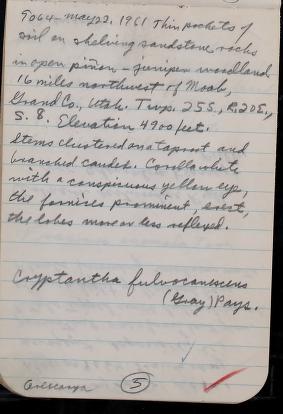 9064 - May 22, 1961 Thin pockets of
soil on shelving sandstone rocks
in open piñon - juniper woodland
16 miles northwest of Moab,
Grand Co., Utah. Twp. 25S., R.20E.,
S. 8. Elevation 4900 feet.
Stems clustered on a taproot and
branched caudex. Corolla white
with a conspicuous yellow eye,
the fornices prominent, erect,
the lobes more or less reflexed.
Cryptantha fulvocanescens
(Gray) Pays.
5